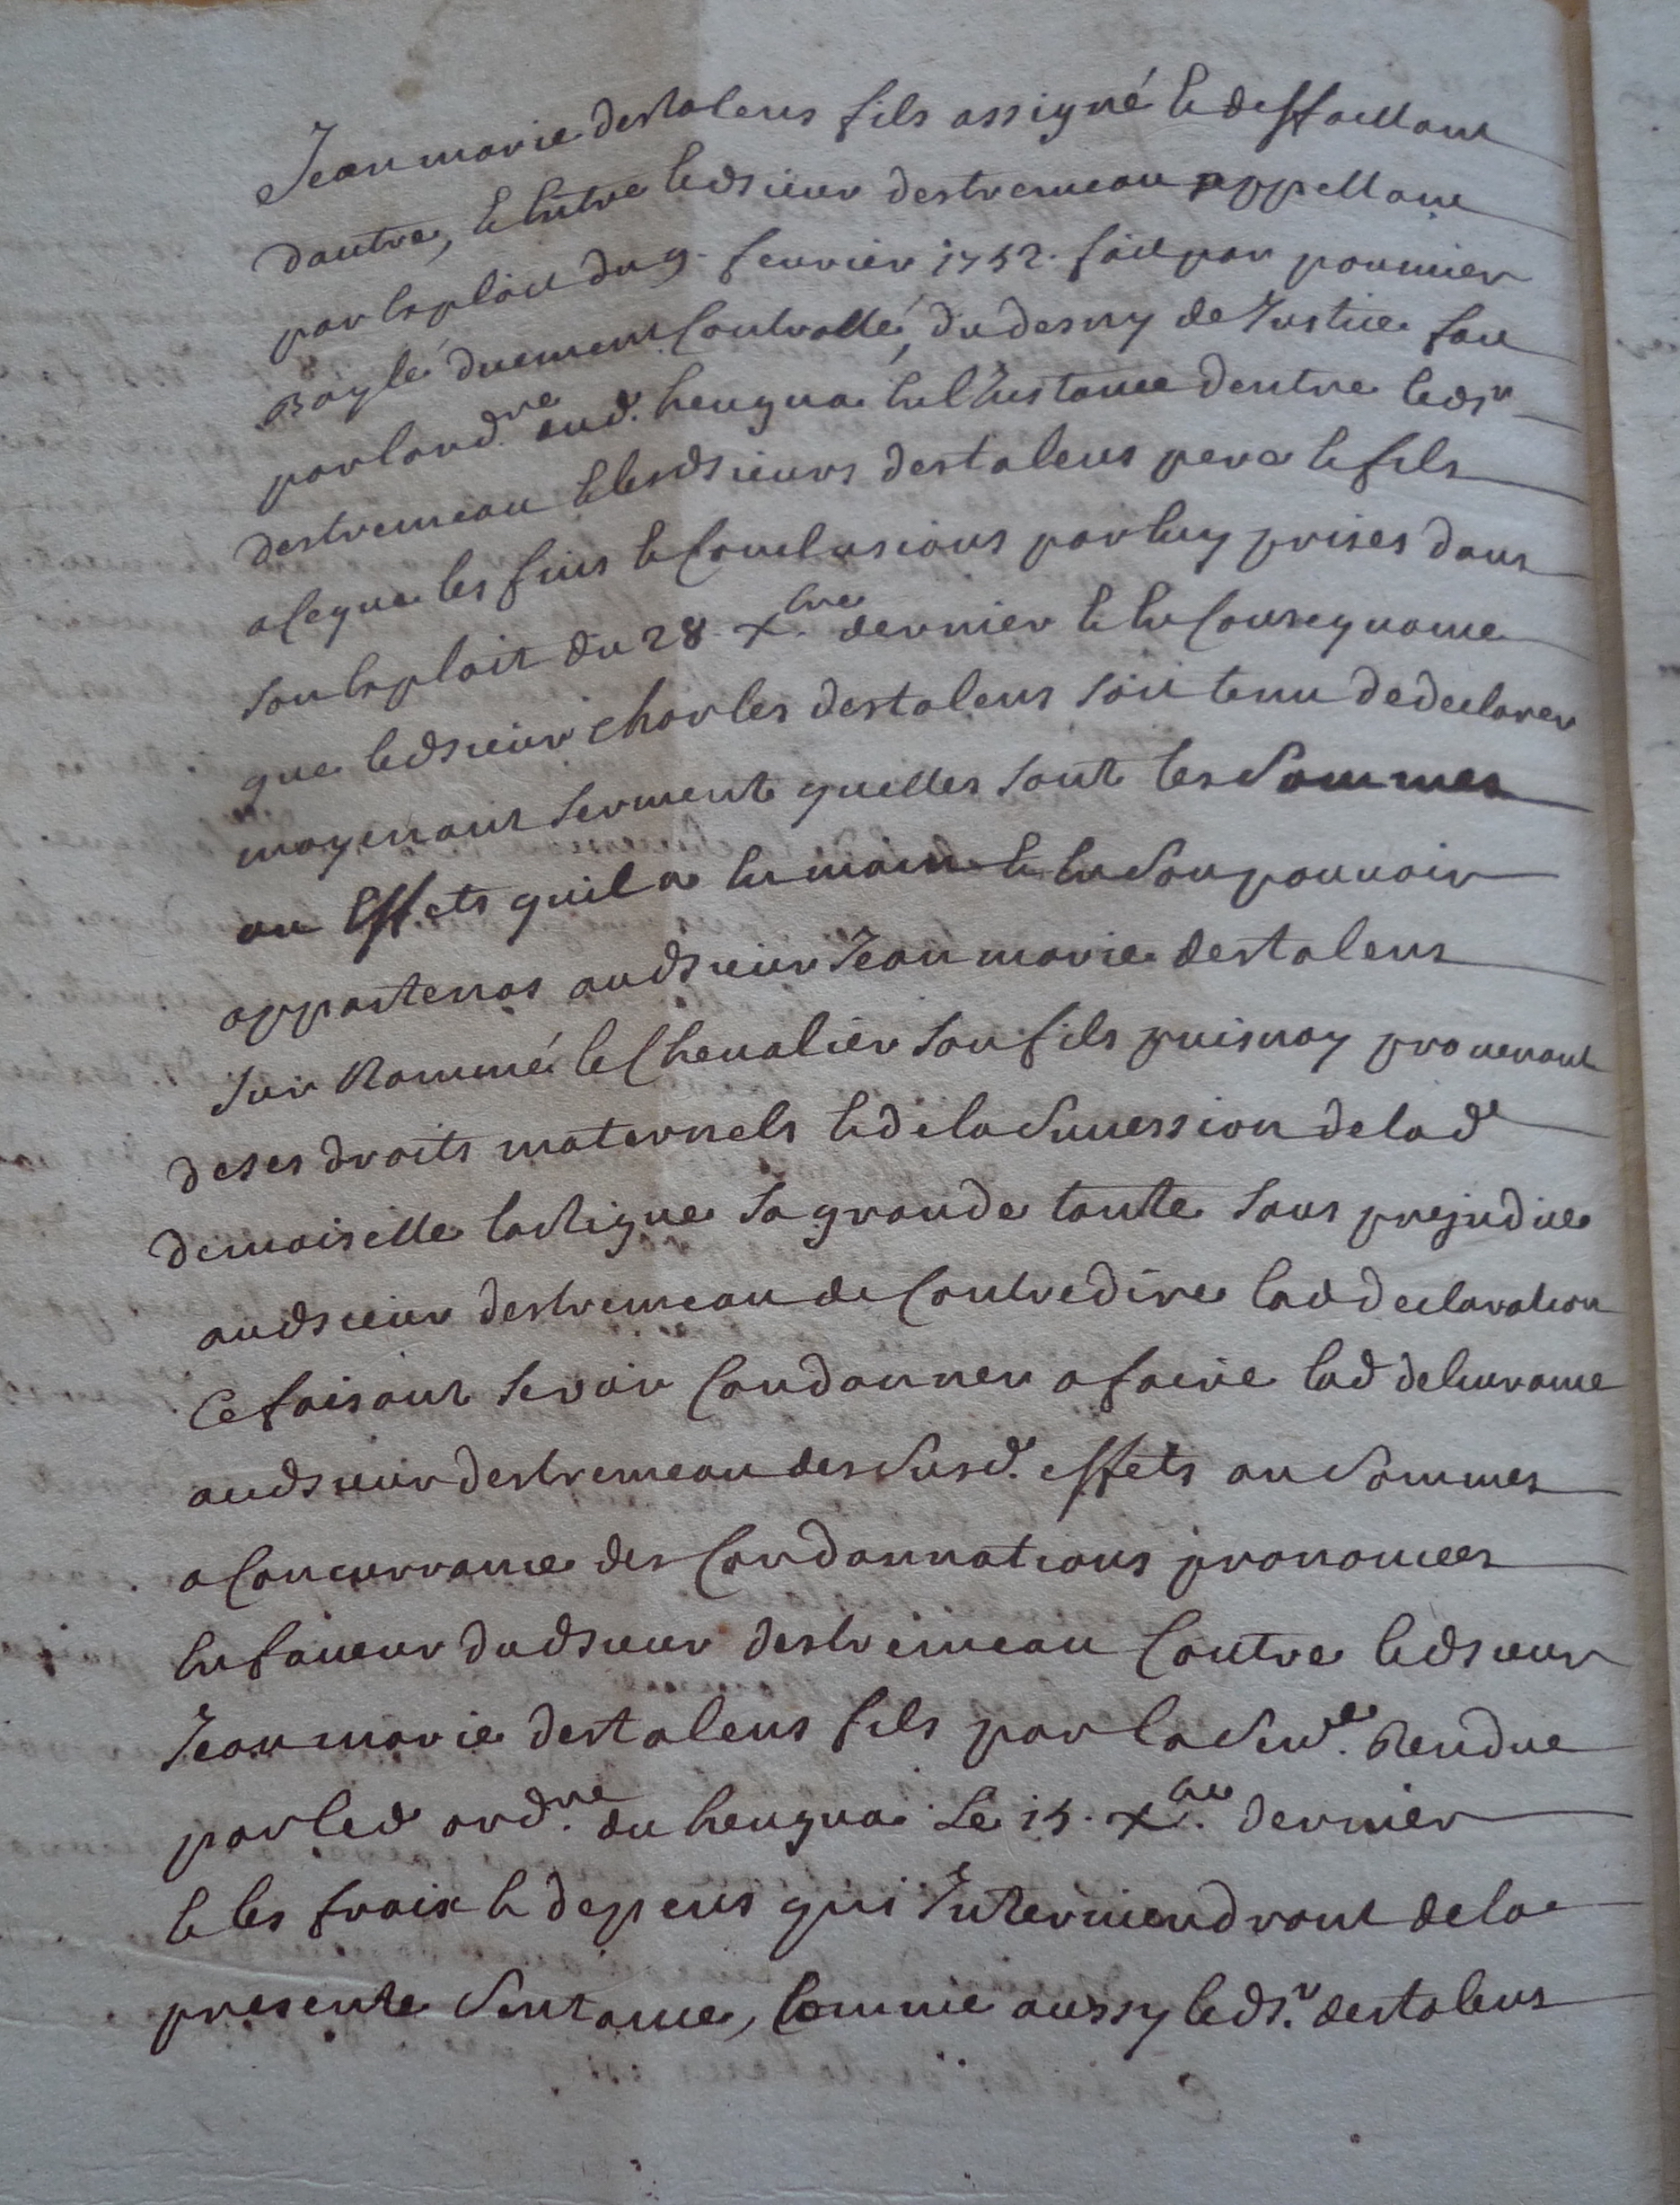 Jean marie destalens fils assigné et deffaillant
dautre, et Entre led sieur destremeau appellant
par Exploit du 9. feurier 1752. fait par poumier
Bayle duement Controllé, du desny de Justice fait
par lord.re aud. heugua En l'Instance dentre led sr
destremeau et lesd sieurs destalens pere et fils
a Ceque les fins et Conclusions par luy prises dans
son Exploit du 28. Xbre dernier et En Consequance
que led sieur charles destalens soit tenu de declarer
moyenant serment quelles sont les Sommes
ou Effets quil a En main et En Son pouuoir
appartenas aud sieur Jean marie destalens
sur Nommé le Cheualier son fils puisnay prouenant
de ses droits maternels et de la Succession de lad
demoiselle lartigue sa grande tante sans prejudice
aud sieur destremeau de Contredire lad declaration
Ce faisant se voir Condanner a faire lad deliurance
aud sieur destremeau des Susd. effets ou Sommes
a Concurrance des Condannations prononcees
En faueur dud sieur destremeau Contre led sieur
Jean marie destalens fils par la Sen.ce Rendue
par led ord.re du heugua Le 15. Xbre dernier
et les fraix et depens qui Interviendront de la
presente Sentance, Comme aussy led s.r destalens